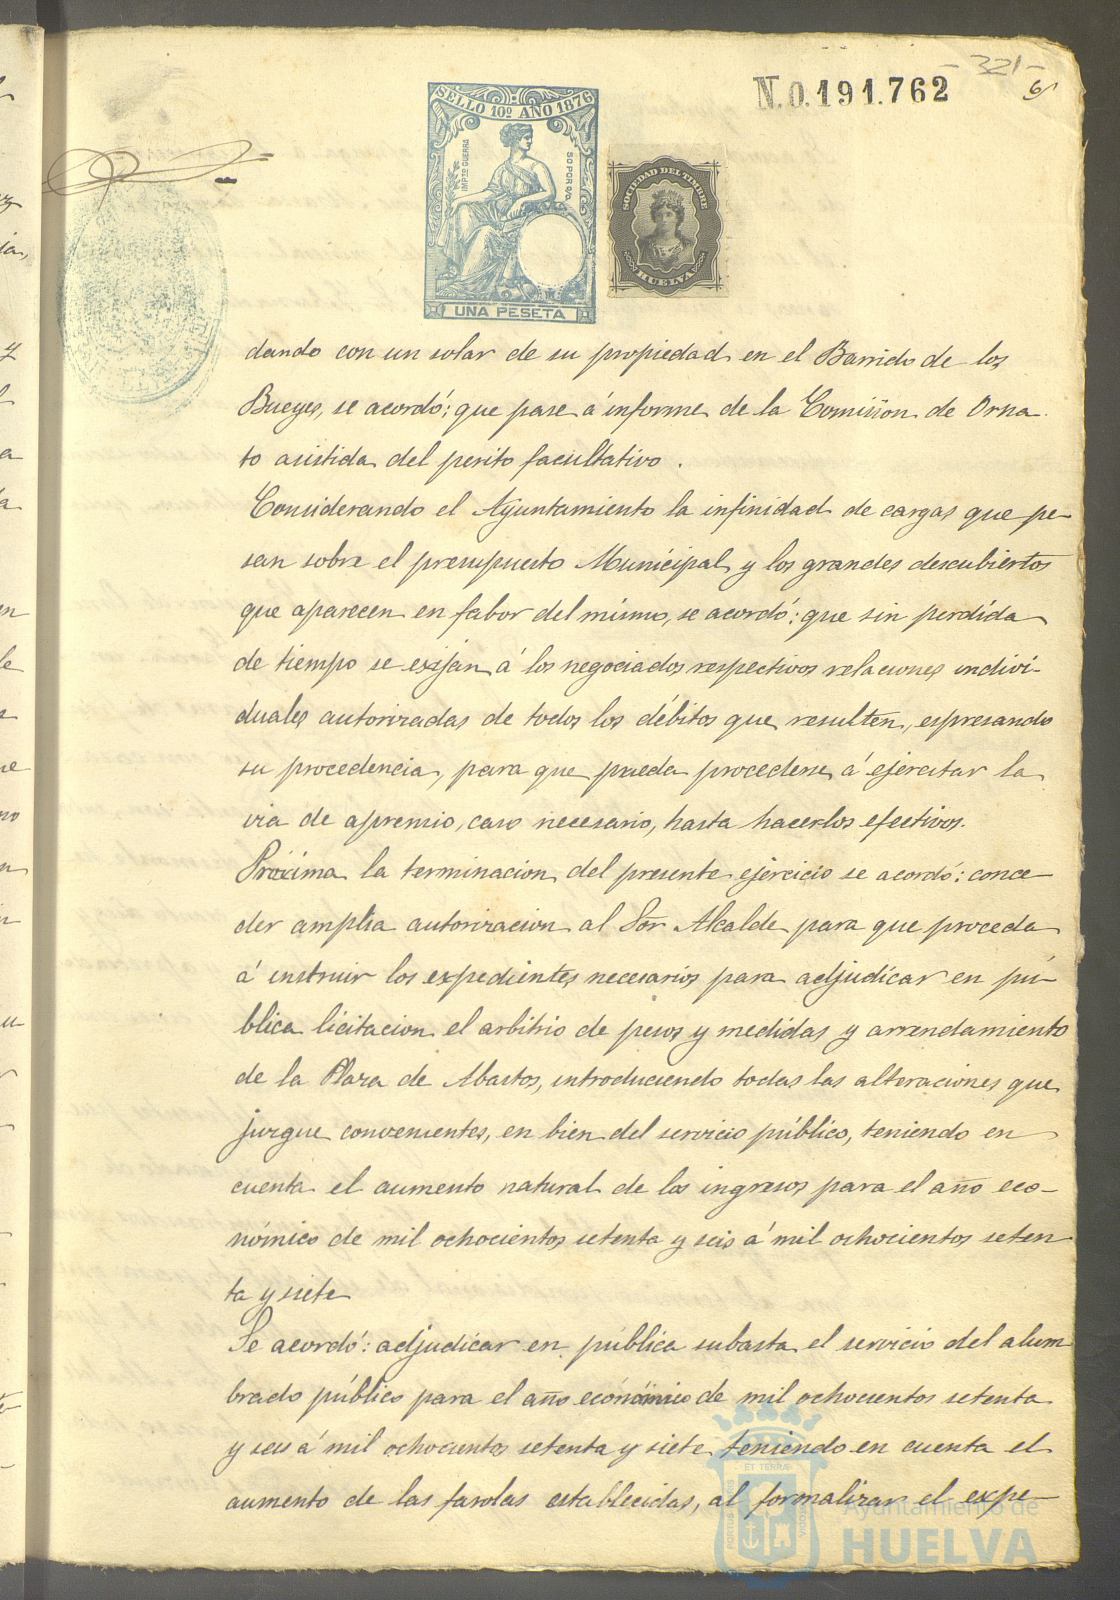 -321-
N.0.191.762
6
SELLO 10º AÑO 1876
IMPTO GUERRA
50 POR 0/0
UNA PESETA
SOCIEDAD DEL TIMBRE
HUELVA
dando con un solar de su propiedad en el Barrido de los
Bueyes, se acordó; que pase á informe de la Comision de Orna-
to asistida del perito facultativo.
Considerando el Ayuntamiento la infinidad de cargas que pe-
san sobre el presupuesto Municipal y los grandes descubiertos
que aparecen en fabor del mismo, se acordó; que sin perdida
de tiempo se exijan á los negociados respectivos relaciones indivi-
duales autorizadas de todos los débitos que resulten, espresando
su procedencia, para que pueda procederse á ejercitar la
via de apremio, caso necesario, hasta hacerlos efectivos.
Próxima la terminacion del presente ejercicio se acordó: conce-
der amplia autorizacion al Sor Alcalde para que proceda
á instruir los expedientes necesarios para adjudicar en pú-
blica licitacion el arbitrio de pesos y medidas y arrendamiento
de la Plaza de Abastos, introduciendo todas las alteraciones que
juzgue convenientes, en bien del servicio público, teniendo en
cuenta el aumento natural de los ingresos para el año eco-
nómico de mil ochocientos setenta y seis á mil ochocientos seten
ta y siete
Se acordó: adjudicar en pública subasta el servicio del alum
brado público para el año económico de mil ochocientos setenta
y seis á mil ochocientos setenta y siete teniendo en cuenta el
aumento de las farolas establecidas, al formalizar el expe-
Ayuntamiento de
HUELVA